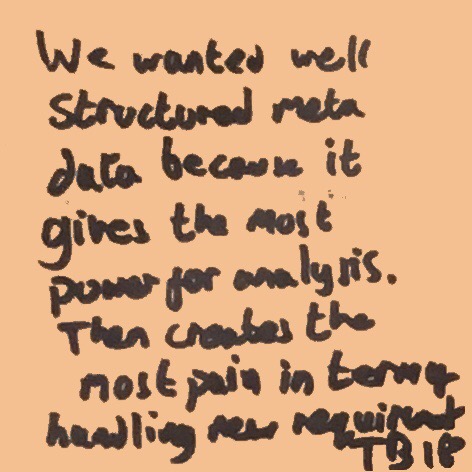 We wanted well
structured meta
data because it
gives the most
power for analysis.
Then creates the
most pain in terms of
handling new requirement
TB 18